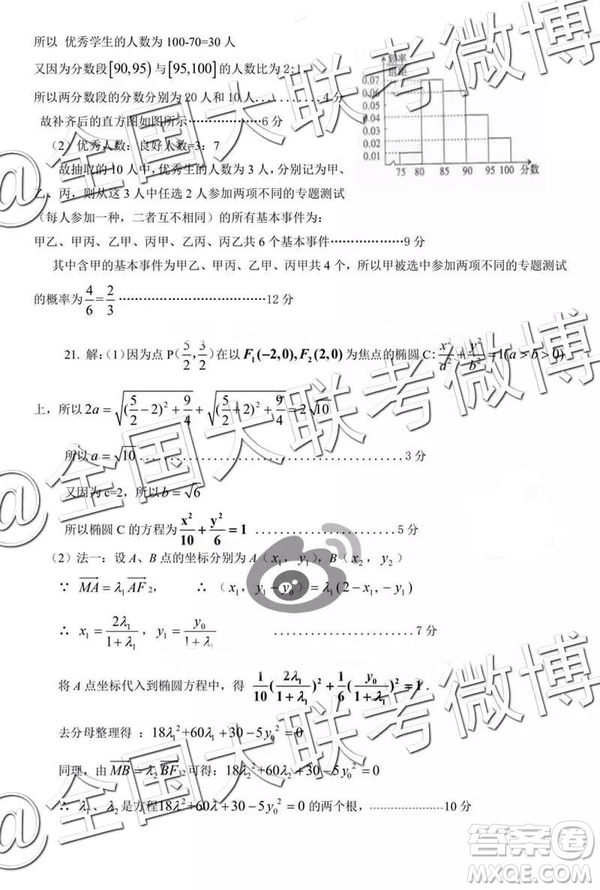 所以 优秀学生的人数为 100-70=30 人
又因为分数段[90,95)与[95,100]的人数比为 2:1,
所以两分数段的分数分别为 20 人和 10 人..........4 分
故补齐后的直方图如图所示………………6 分
频率
组距
0.07
0.06
0.05
0.04
0.03
0.02
0.01
75 80 85 90 95 100 分数
(2)优秀人数:良好人数=3:7
故抽取的 10 人中,优秀生的人数为 3 人,分别记为甲、
乙、丙,则从这 3 人中任选 2 人参加两项不同的专题测试
(每人参加一种,二者互不相同)的所有基本事件为:
甲乙、甲丙、乙甲、丙甲、乙丙、丙乙共 6 个基本事件………………9 分
其中含甲的基本事件为甲乙、甲丙、乙甲、丙甲共 4 个,所以甲被选中参加两项不同的专题测试
的概率为 4/6=2/3 ………………………………12 分
21. 解:(1)因为点 P(5/2,3/2)在以 F₁(-2,0),F₂(2,0)为焦点的椭圆 C: x²/a²+y²/b²=1(a>b>0)
上,所以 2a=√((5/2-2)²+9/4)+√((5/2+2)²+9/4)=2√10
所以 a=√10 ........................3 分
又因为 c=2,所以 b=√6
所以椭圆 C 的方程为 x²/10+y²/6=1 ................5 分
(2)法一:设 A、B 点的坐标分别为 A(x₁,y₁),B(x₂,y₂)
∵ MA=λ₁AF₂, ∴(x₁,y₁-y₀)=λ₁(2-x₁,-y₁)
∴ x₁=2λ₁/(1+λ₁),y₁=y₀/(1+λ₁) ................7 分
将 A 点坐标代入到椭圆方程中,得 1/10(2λ₁/(1+λ₁))²+1/6(y₀/(1+λ₁))²=1.
去分母整理得:18λ₁²+60λ₁+30-5y₀²=0
同理,由 MB=λ₂BF₂ 可得:18λ₂²+60λ₂+30-5y₀²=0
∴ λ₁、λ₂是方程18λ²+60λ+30-5y₀²=0 的两个根,..................10 分
@全国大联考微博
@全国大联考微博
@全国大联考微博
答案卷
MXQE.COM